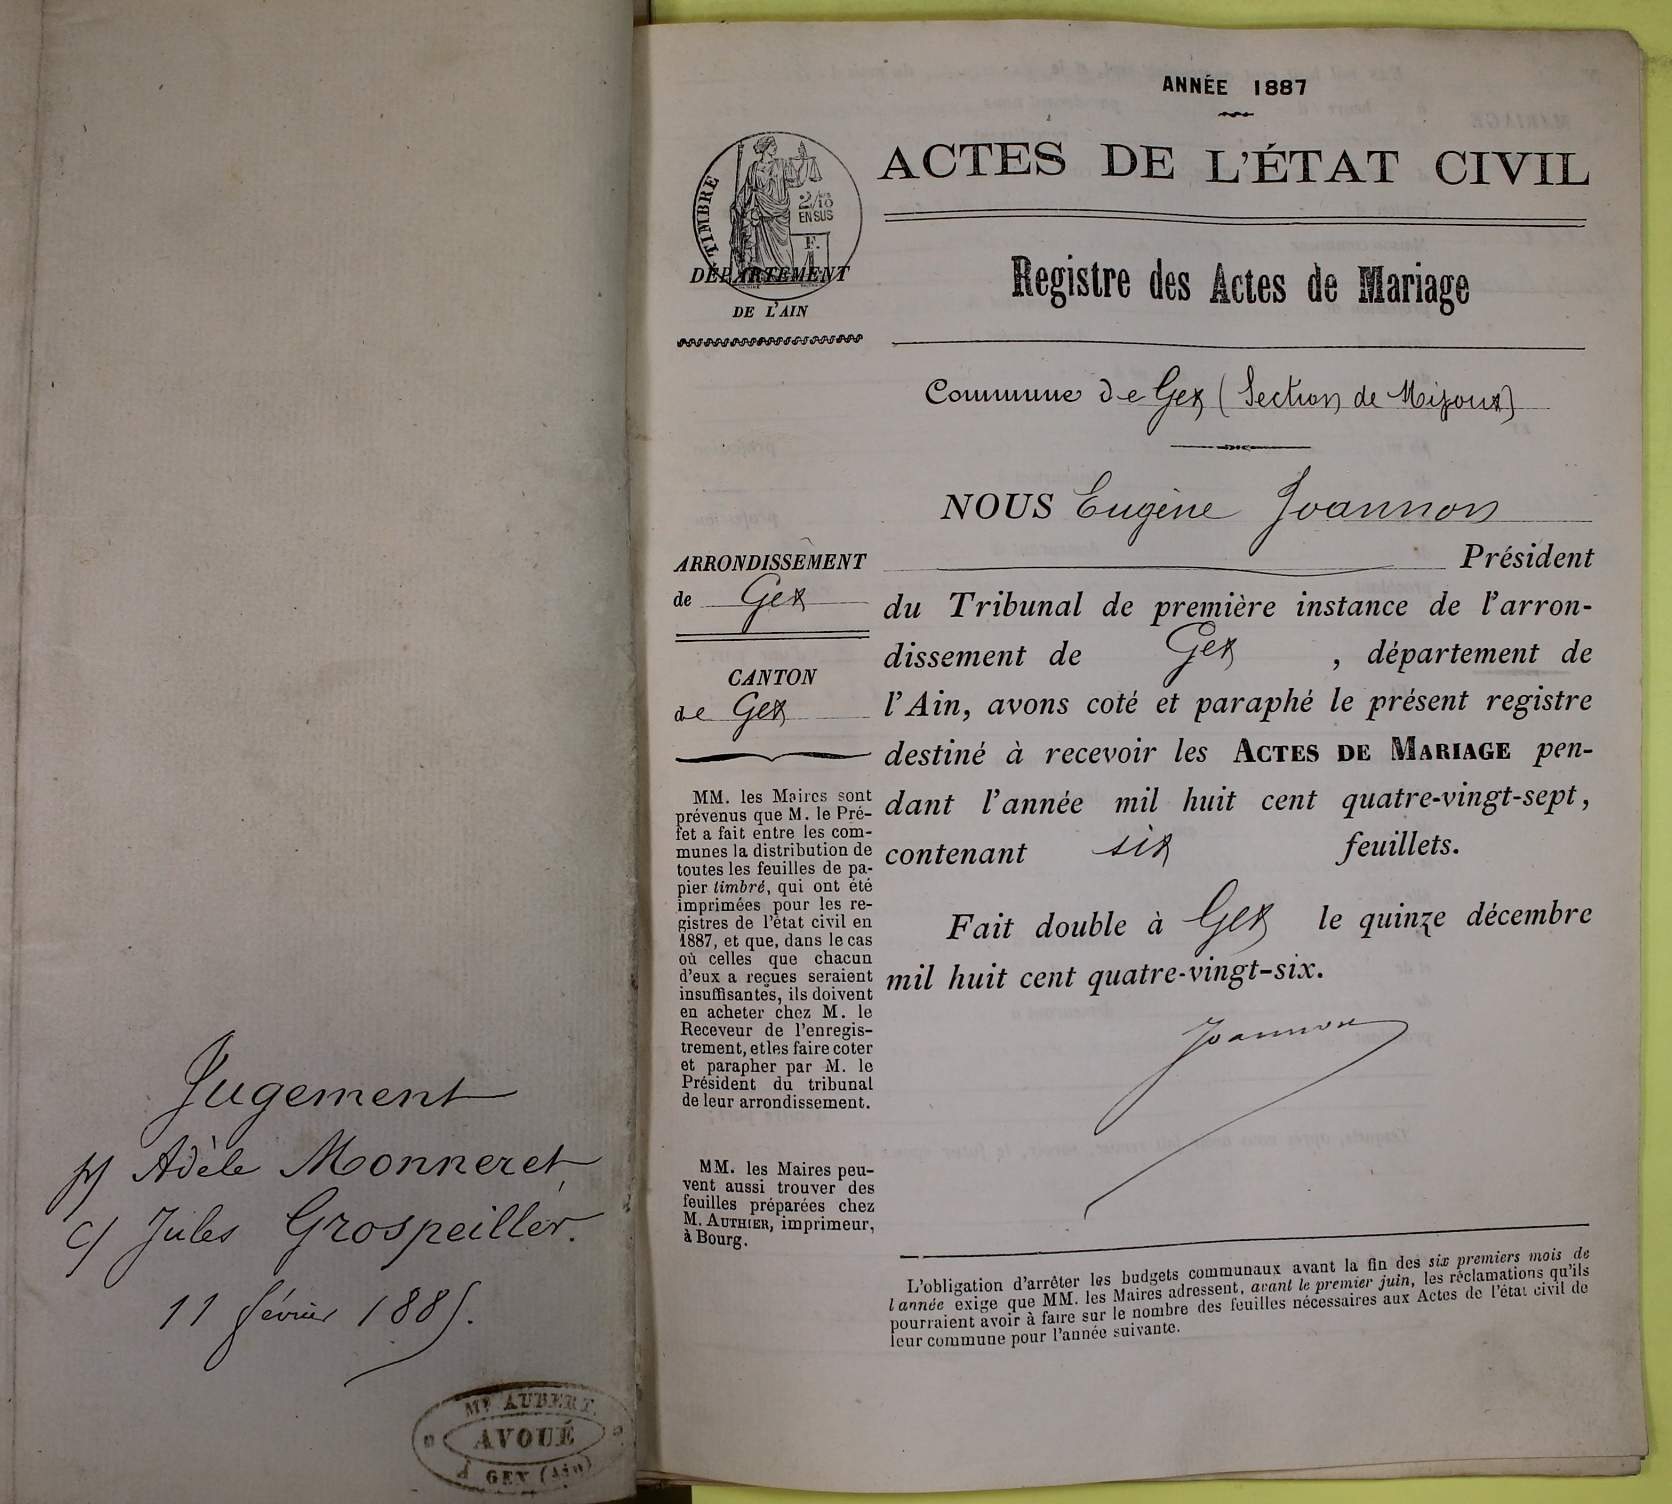 Jugement
p/ Adèle Monneret
c/ Jules Grospeiller.
11 février 1885.
Me AUBERT.
AVOUÉ
À GEX (Ain)
ANNÉE 1887
ACTES DE L'ÉTAT CIVIL
Registre des Actes de Mariage
TIMBRE
2/10
EN SUS
F.
DÉPARTEMENT
DE L'AIN
Commune de Gex (Section de Mijoux)
NOUS Eugène Joannon
Président
du Tribunal de première instance de l'arron-
dissement de Gex, département de
l'Ain, avons coté et paraphé le présent registre
destiné à recevoir les ACTES DE MARIAGE pen-
dant l'année mil huit cent quatre-vingt-sept,
contenant six feuillets.
Fait double à Gex le quinze décembre
mil huit cent quatre-vingt-six.
Joannon
ARRONDISSEMENT
de Gex
CANTON
de Gex
MM. les Maires sont
prévenus que M. le Pré-
fet a fait entre les com-
munes la distribution de
toutes les feuilles de pa-
pier timbré, qui ont été
imprimées pour les re-
gistres de l'état civil en
1887, et que, dans le cas
où celles que chacun
d'eux a reçues seraient
insuffisantes, ils doivent
en acheter chez M. le
Receveur de l'enregis-
trement, et les faire coter
et parapher par M. le
Président du tribunal
de leur arrondissement.
MM. les Maires peu-
vent aussi trouver des
feuilles préparées chez
M. AUTHIER, imprimeur,
à Bourg.
L'obligation d'arrêter les budgets communaux avant la fin des six premiers mois de
l'année exige que MM. les Maires adressent, avant le premier juin, les réclamations qu'ils
pourraient avoir à faire sur le nombre des feuilles nécessaires aux Actes de l'état civil de
leur commune pour l'année suivante.